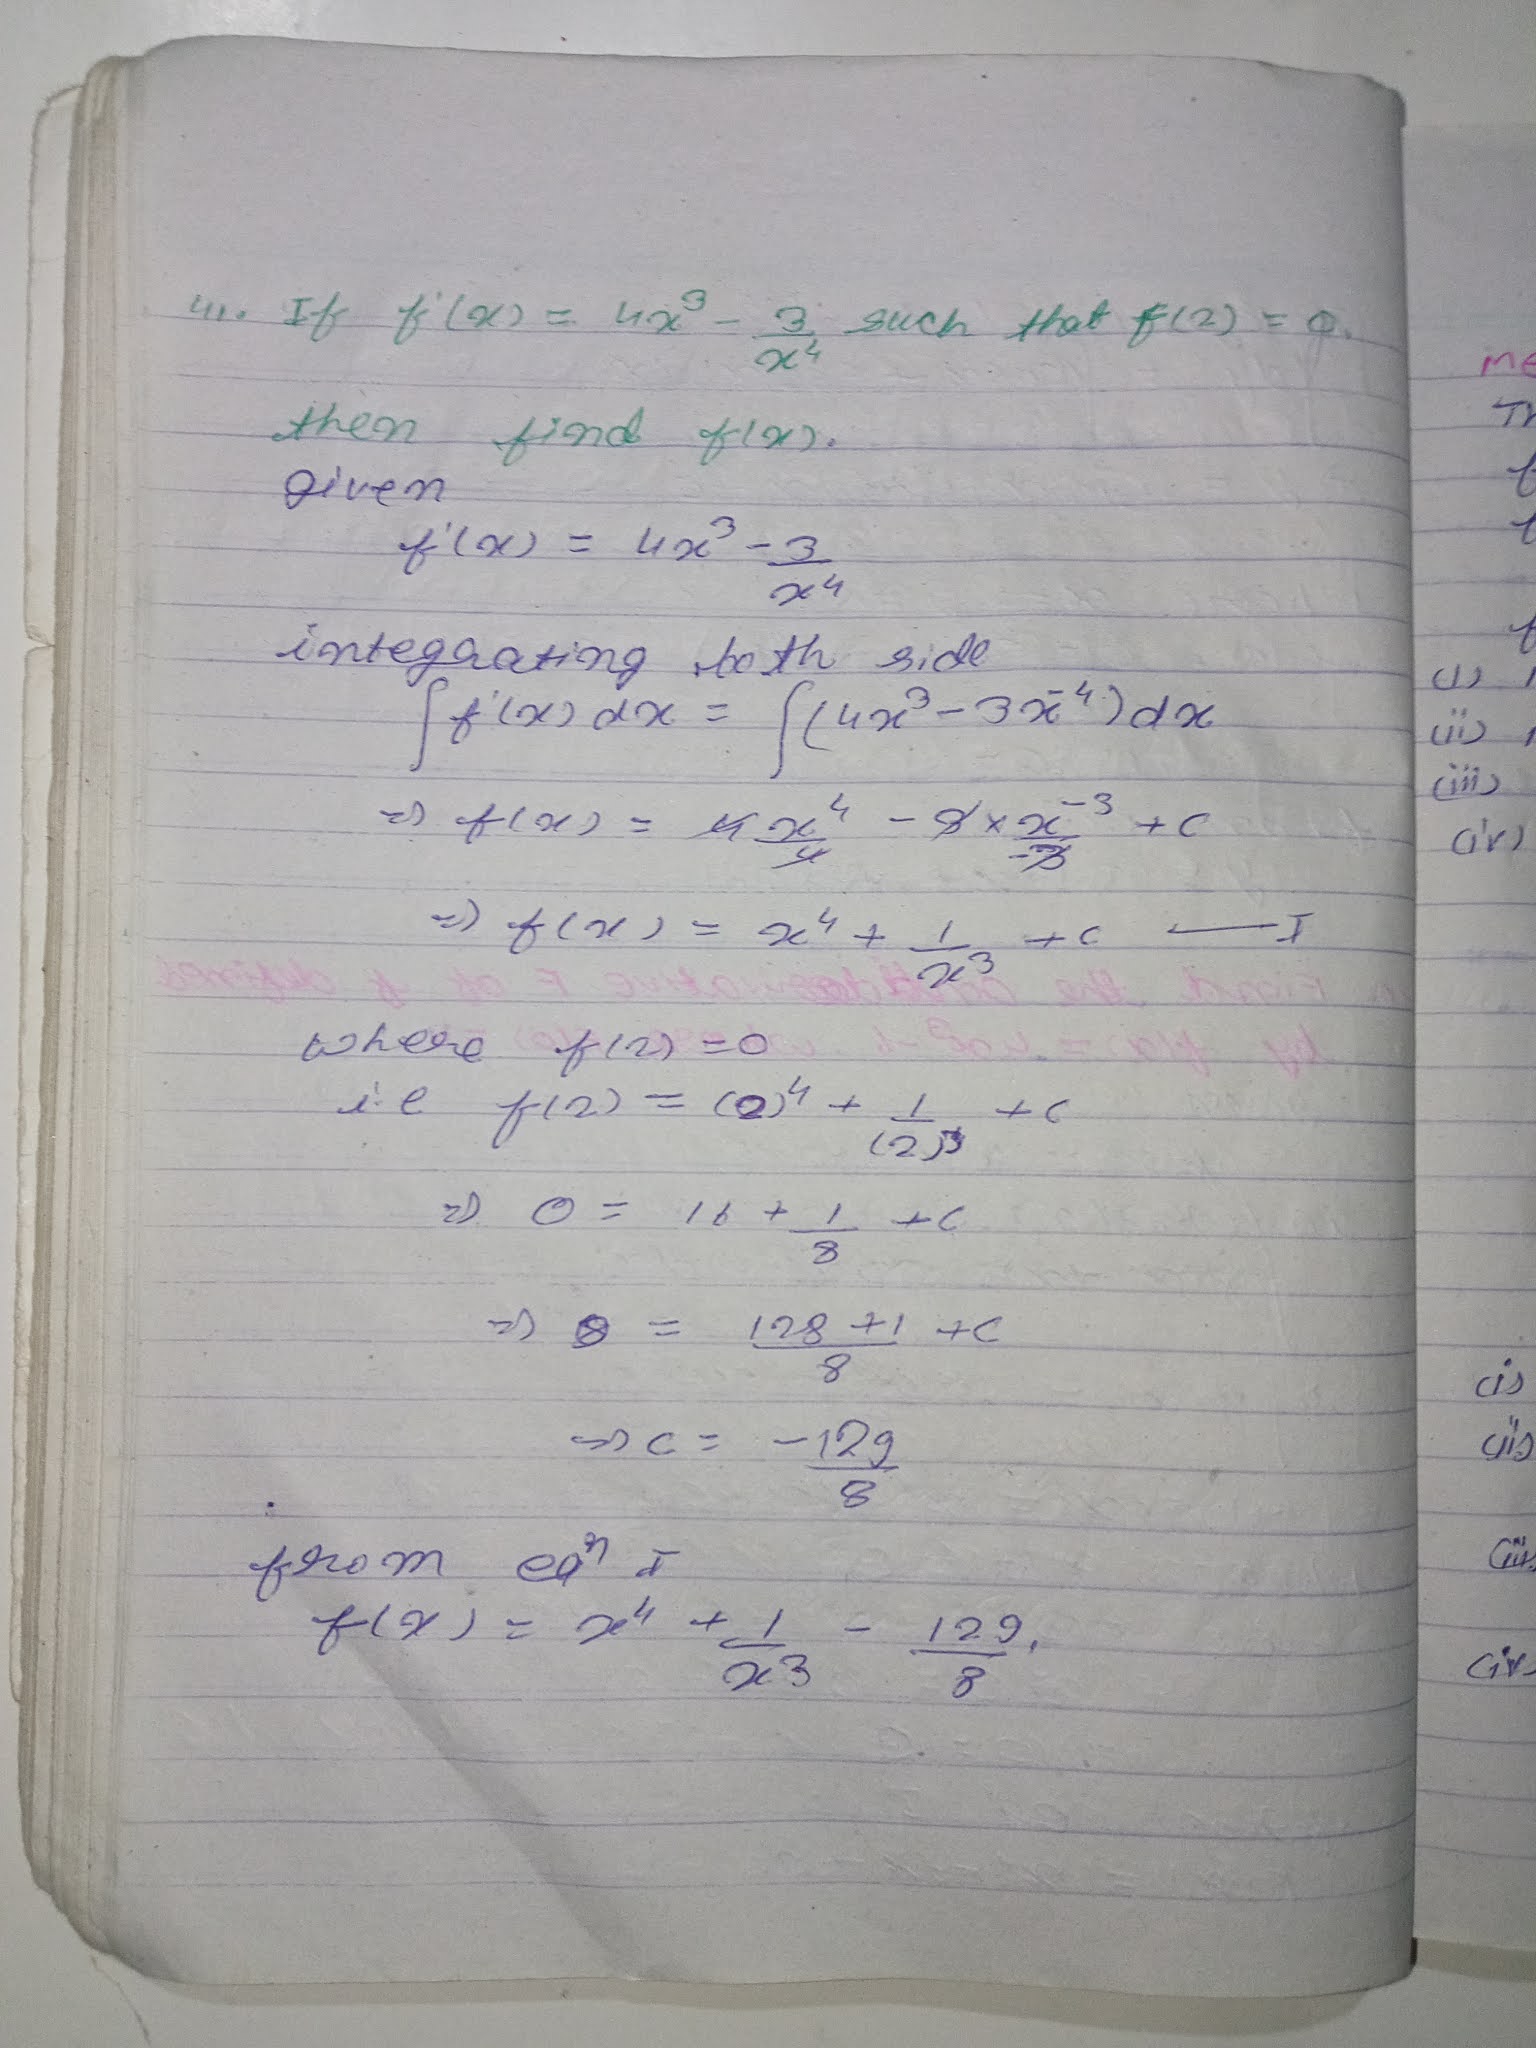 4. If f'(x) = 4x³ - 3/x⁴ such that f(2) = 0.
then find f(x).
given
f'(x) = 4x³ - 3/x⁴
integrating both side
∫f'(x) dx = ∫(4x³ - 3x⁻⁴) dx
⇒ f(x) = 4 x⁴/4 - 3 × x⁻³/-3 + c
⇒ f(x) = x⁴ + 1/x³ + c — I
where f(2) = 0
i.e f(2) = (2)⁴ + 1/(2)³ + c
⇒ 0 = 16 + 1/8 + c
⇒ 0 = 128 + 1/8 + c
⇒ c = -129/8
from eqⁿ I
f(x) = x⁴ + 1/x³ - 129/8.
ME
Th
f
f
f
(i) 1
(ii) 1
(iii)
(iv)
(i)
(ii)
(iii)
(iv)